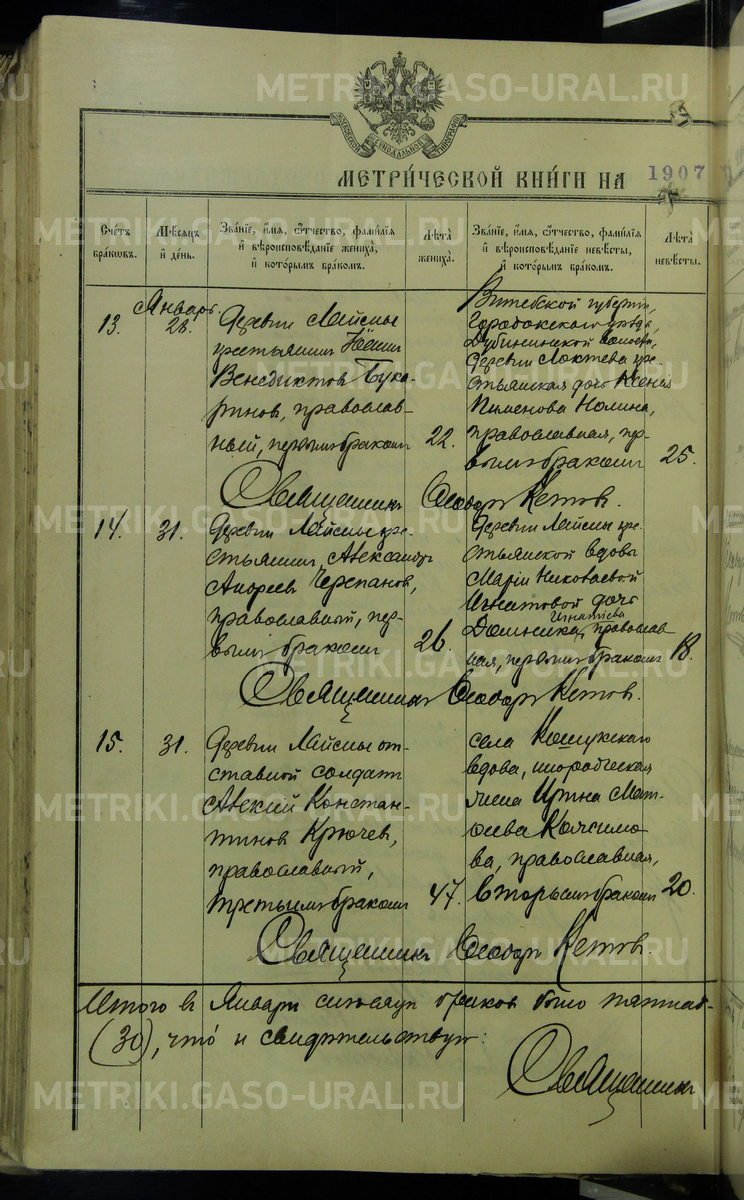 МЕТРИ́ЧЕСКОЙ КНИ́ГИ НА 1907
Сче́тъ бра́ковъ.
Мѣ́сяцъ и҆ де́нь.
Зва́нїе, и҆́мѧ, ѻ҆́тчество, фами́лїѧ и҆ вѣроисповѣ́данїе жениха̀, и҆ кото́рымъ бра́комъ.
Лѣ́та жениха̀.
Зва́нїе, и҆́мѧ, ѻ҆́тчество, фами́лїѧ и҆ вѣроисповѣ́данїе невѣ́сты, и҆ кото́рымъ бра́комъ.
Лѣ́та невѣ́сты.
13.
Январь.
28.
Деревни Лаймы
крестьянинъ Іоаннъ
Венедиктовъ Бука-
риновъ, православ-
ный, первымъ бракомъ
22.
Витебской губерніи,
Городокскаго уѣзда,
Дубининской волости,
деревни Локтева кре-
стьянская дочь Ксенія
Пименова
православная, пер-
вымъ бракомъ
25.
Священникъ Ѳеодоръ Кетовъ.
14.
31.
Деревни Лаймы кре-
стьянинъ Александръ
Андреевъ Черепановъ,
православный, пер-
вымъ бракомъ
26.
Деревни Лаймы кре-
стьянской вдовы
Маріи Николаевой
Игнатовой дочь
Домника Игнатіева, православ
ная, первымъ бракомъ
18.
Священникъ Ѳеодоръ Кетовъ.
15.
31.
Деревни Лаймы от-
ставной солдатъ
Алексій Констан-
тиновъ Крючев,
православный,
третьимъ бракомъ
47.
села Кошукскаго
вдова, инородческая
жена Ирина Мат-
ѳиева Каксимо-
ва, православная,
вторымъ бракомъ
20.
Священникъ Ѳеодоръ Кетовъ.
Итого въ Январѣ мѣсяцѣ браковъ было пятнад-
(30), что и свидѣтельствую:
Священникъ
METRIKI.GASO-URAL.RU